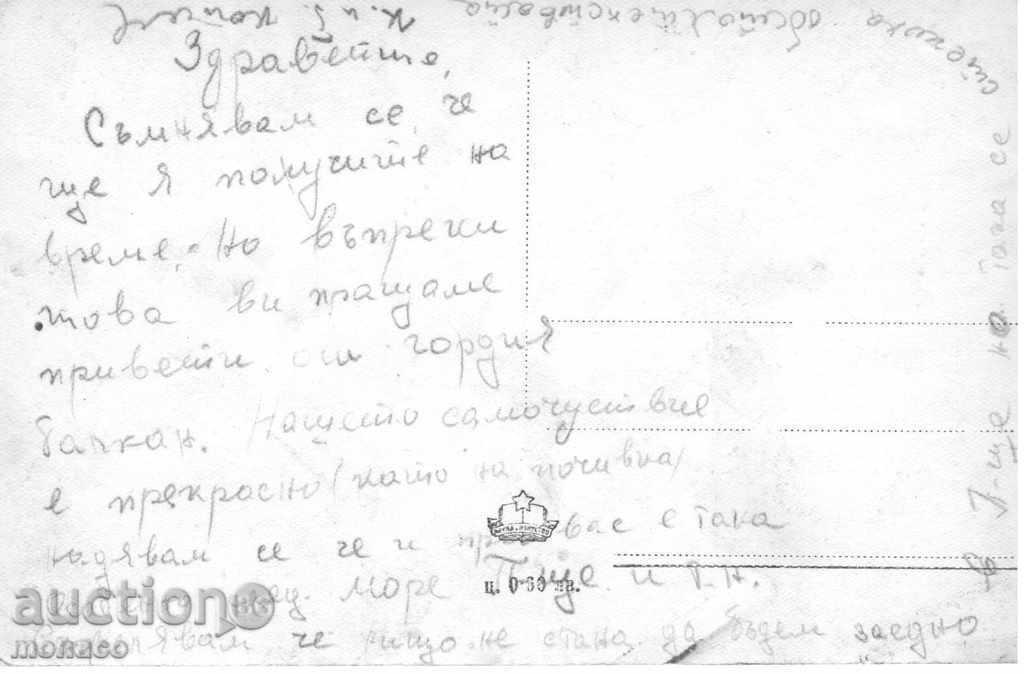 Здравейте,
Съмнявам се, че
ще я получите на
време. Но въпреки
това ви пращаме
привети от гордия
балкан. Нашето самочуствие
е прекрасно (като на почивка)
надявам се че и при вас е така
море П-ще и Т.Н.
че нищо не стана да бъдем заедно
П-ще на така се
стекоха обстоятелствата
К. и
ц. 0·60 лв.
auction.BG
monaco